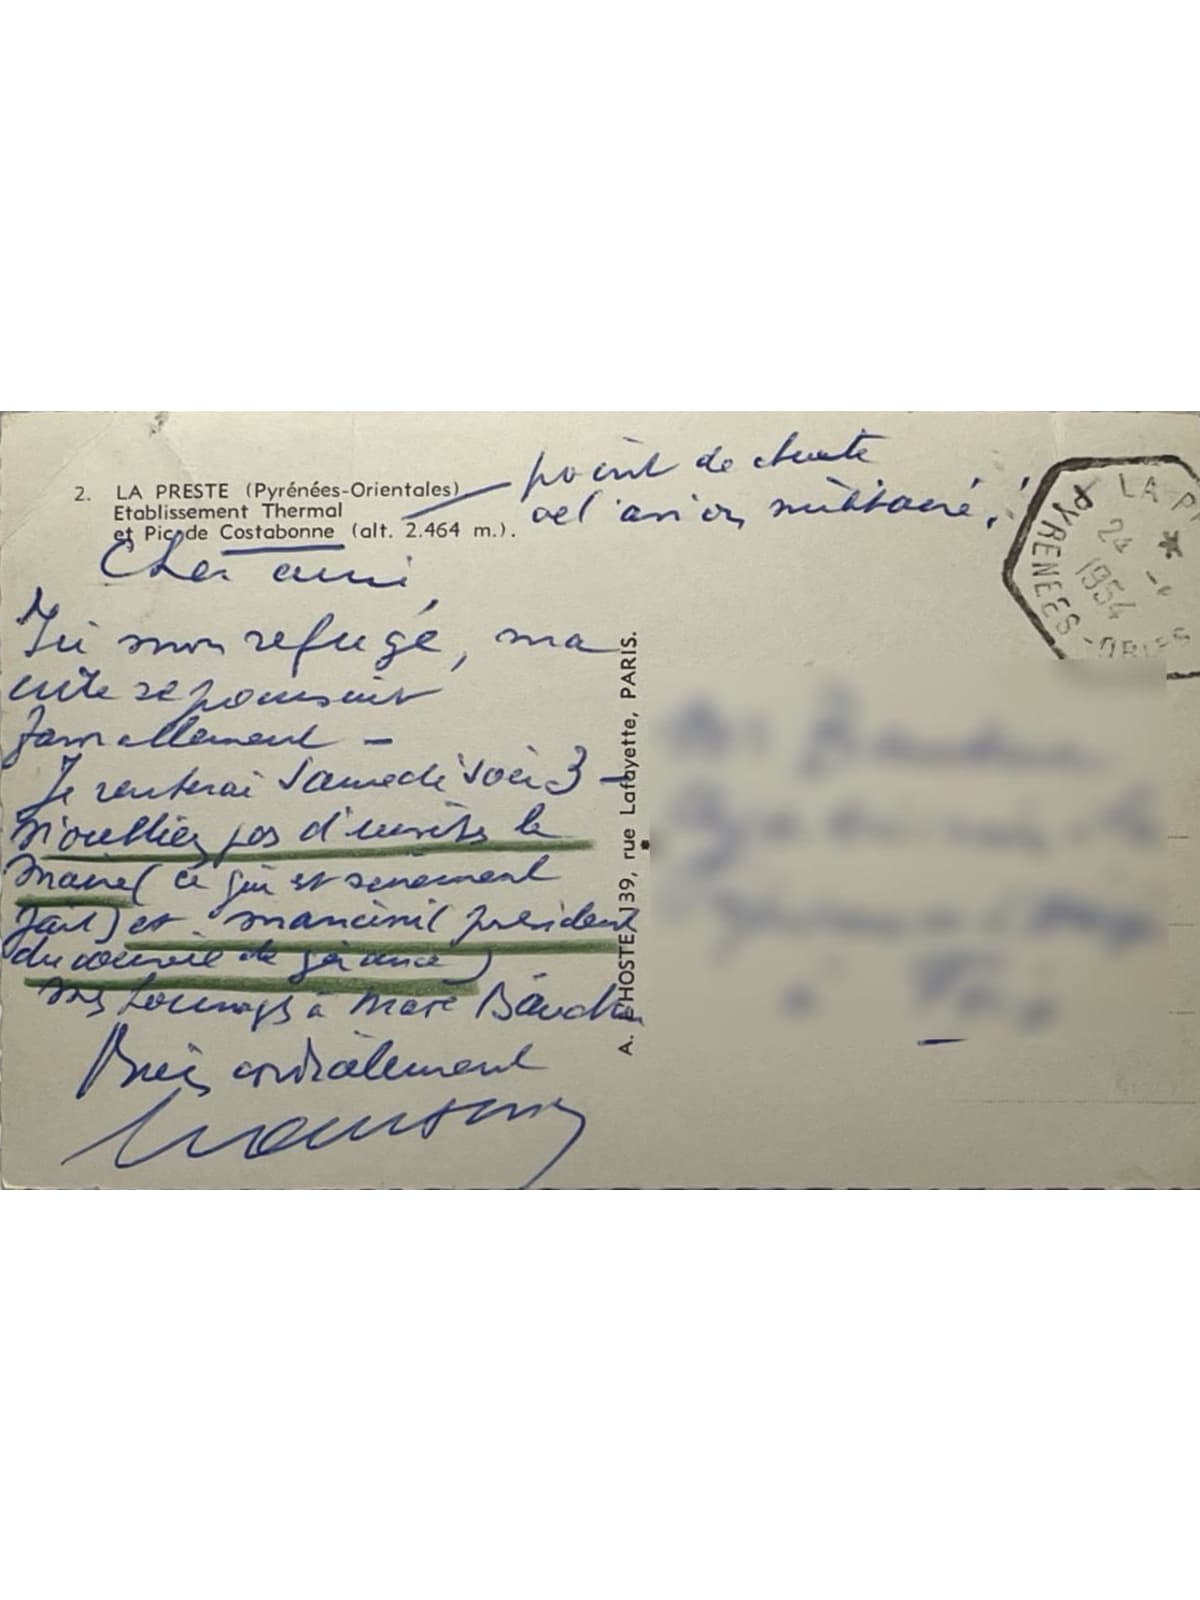 2. LA PRESTE (Pyrénées-Orientales)
Etablissement Thermal
et Pic de Costabonne (alt. 2.464 m.).
point de chute
de l'avion militaire !
Cher ami
Ici mon refuge, ma
cure se poursuit
normalement —
Je rentrerai Samedi soir 3 —
N'oubliez pas d'inviter le
Maire (ce qui est sûrement
fait) et Mancini (président
du conseil de gérance)
Mes hommages à Made
Bien cordialement
A. L'HOSTE, 139, rue Lafayette, PARIS.
LA P
24
1954
PYRENEES-ORIES